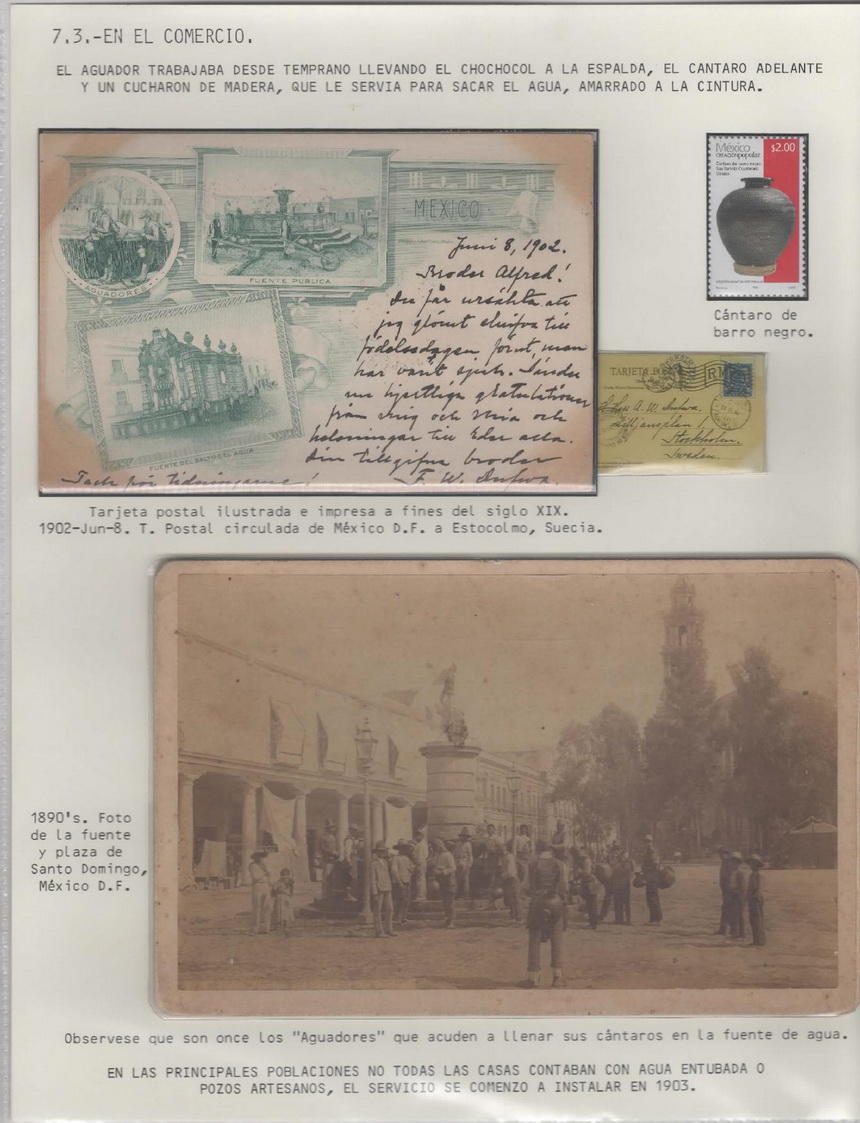 7.3.-EN EL COMERCIO.
EL AGUADOR TRABAJABA DESDE TEMPRANO LLEVANDO EL CHOCHOCOL A LA ESPALDA, EL CANTARO ADELANTE
Y UN CUCHARON DE MADERA, QUE LE SERVIA PARA SACAR EL AGUA, AMARRADO A LA CINTURA.
MEXICO
AGUADORES
FUENTE PUBLICA
FUENTE DEL SALTO DEL AGUA
Juni 8, 1902.
Broder Alfred!
Du får ursäkta att
jag glömt skrifva till
födelsedagen förut, men
har varit sjuk. Sänder
nu hjertliga gratulationer
från mig och Mia och
helsningar till Eder alla.
Din tillgifne broder
F. W.
Tack för tidningarne!
México
creaciónpopular
$2.00
Cántaro de barro negro
Cántaro de
barro negro.
TARJETA
A. W.
Lilljansplan 1,
Stockholm.
Sweden.
Tarjeta postal ilustrada e impresa a fines del siglo XIX.
1902-Jun-8. T. Postal circulada de México D.F. a Estocolmo, Suecia.
1890's. Foto
de la fuente
y plaza de
Santo Domingo,
México D.F.
Observese que son once los "Aguadores" que acuden a llenar sus cántaros en la fuente de agua.
EN LAS PRINCIPALES POBLACIONES NO TODAS LAS CASAS CONTABAN CON AGUA ENTUBADA O
POZOS ARTESANOS, EL SERVICIO SE COMENZO A INSTALAR EN 1903.